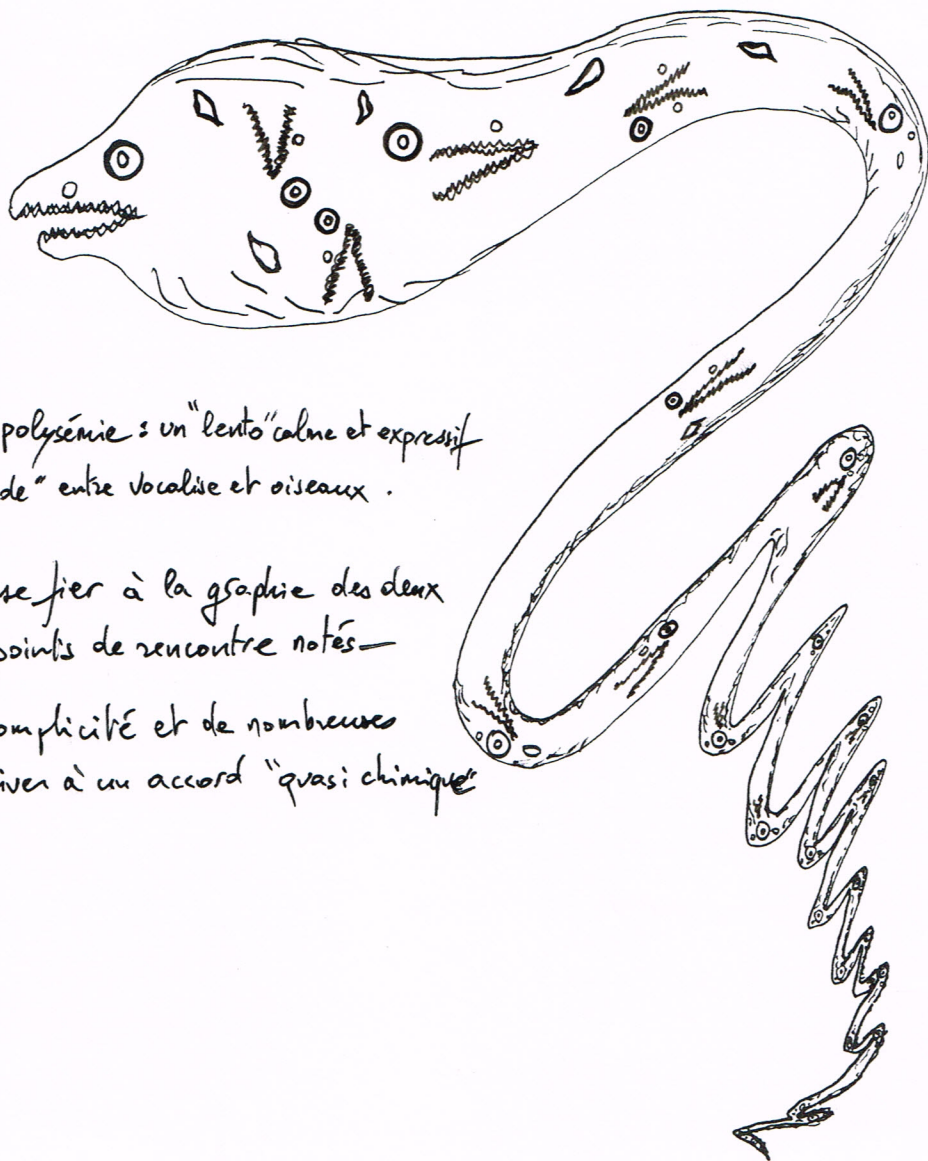 polysémie : un "lento" calme et expressif
de" entre vocalise et oiseaux .
se fier à la graphie des deux
points de rencontre notés—
omplicité et de nombreuses
iver à un accord "quasi chimique"